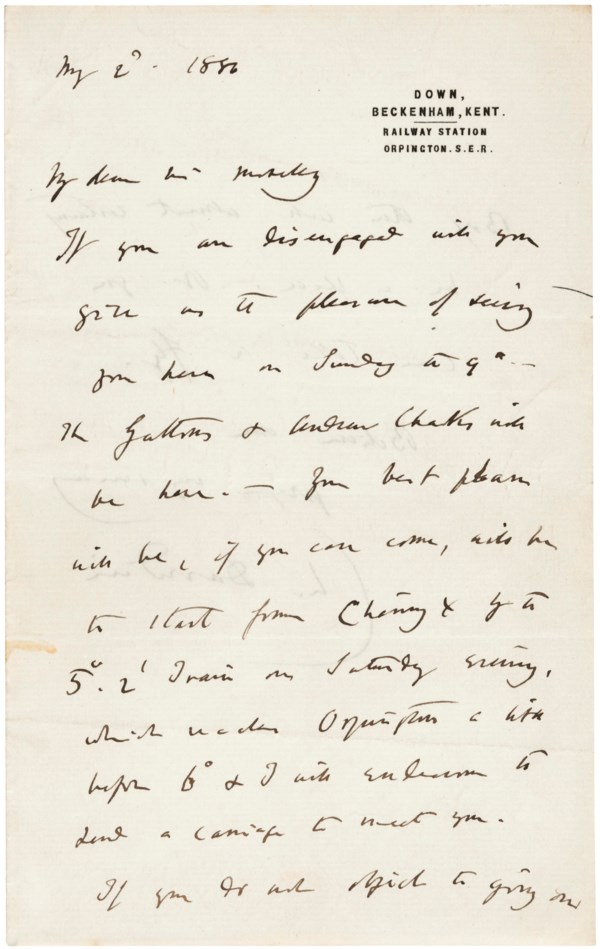 My 2ᵈ. 1880
DOWN,
BECKENHAM, KENT.
RAILWAY STATION
ORPINGTON. S.E.R.
My dear Mr Moseley
If you are disengaged will you
give us the pleasure of seeing
you here on Sunday the 9ᵗʰ. —
The Galtons & Andrew Clarks will
be here. — Your best plan
will be, if you can come, will be
to start from Charing X by the
5°. 2' Train on Saturday evening,
which reaches Orpington a little
before 6° & I will endeavour to
send a carriage to meet you.
If you do not object to going